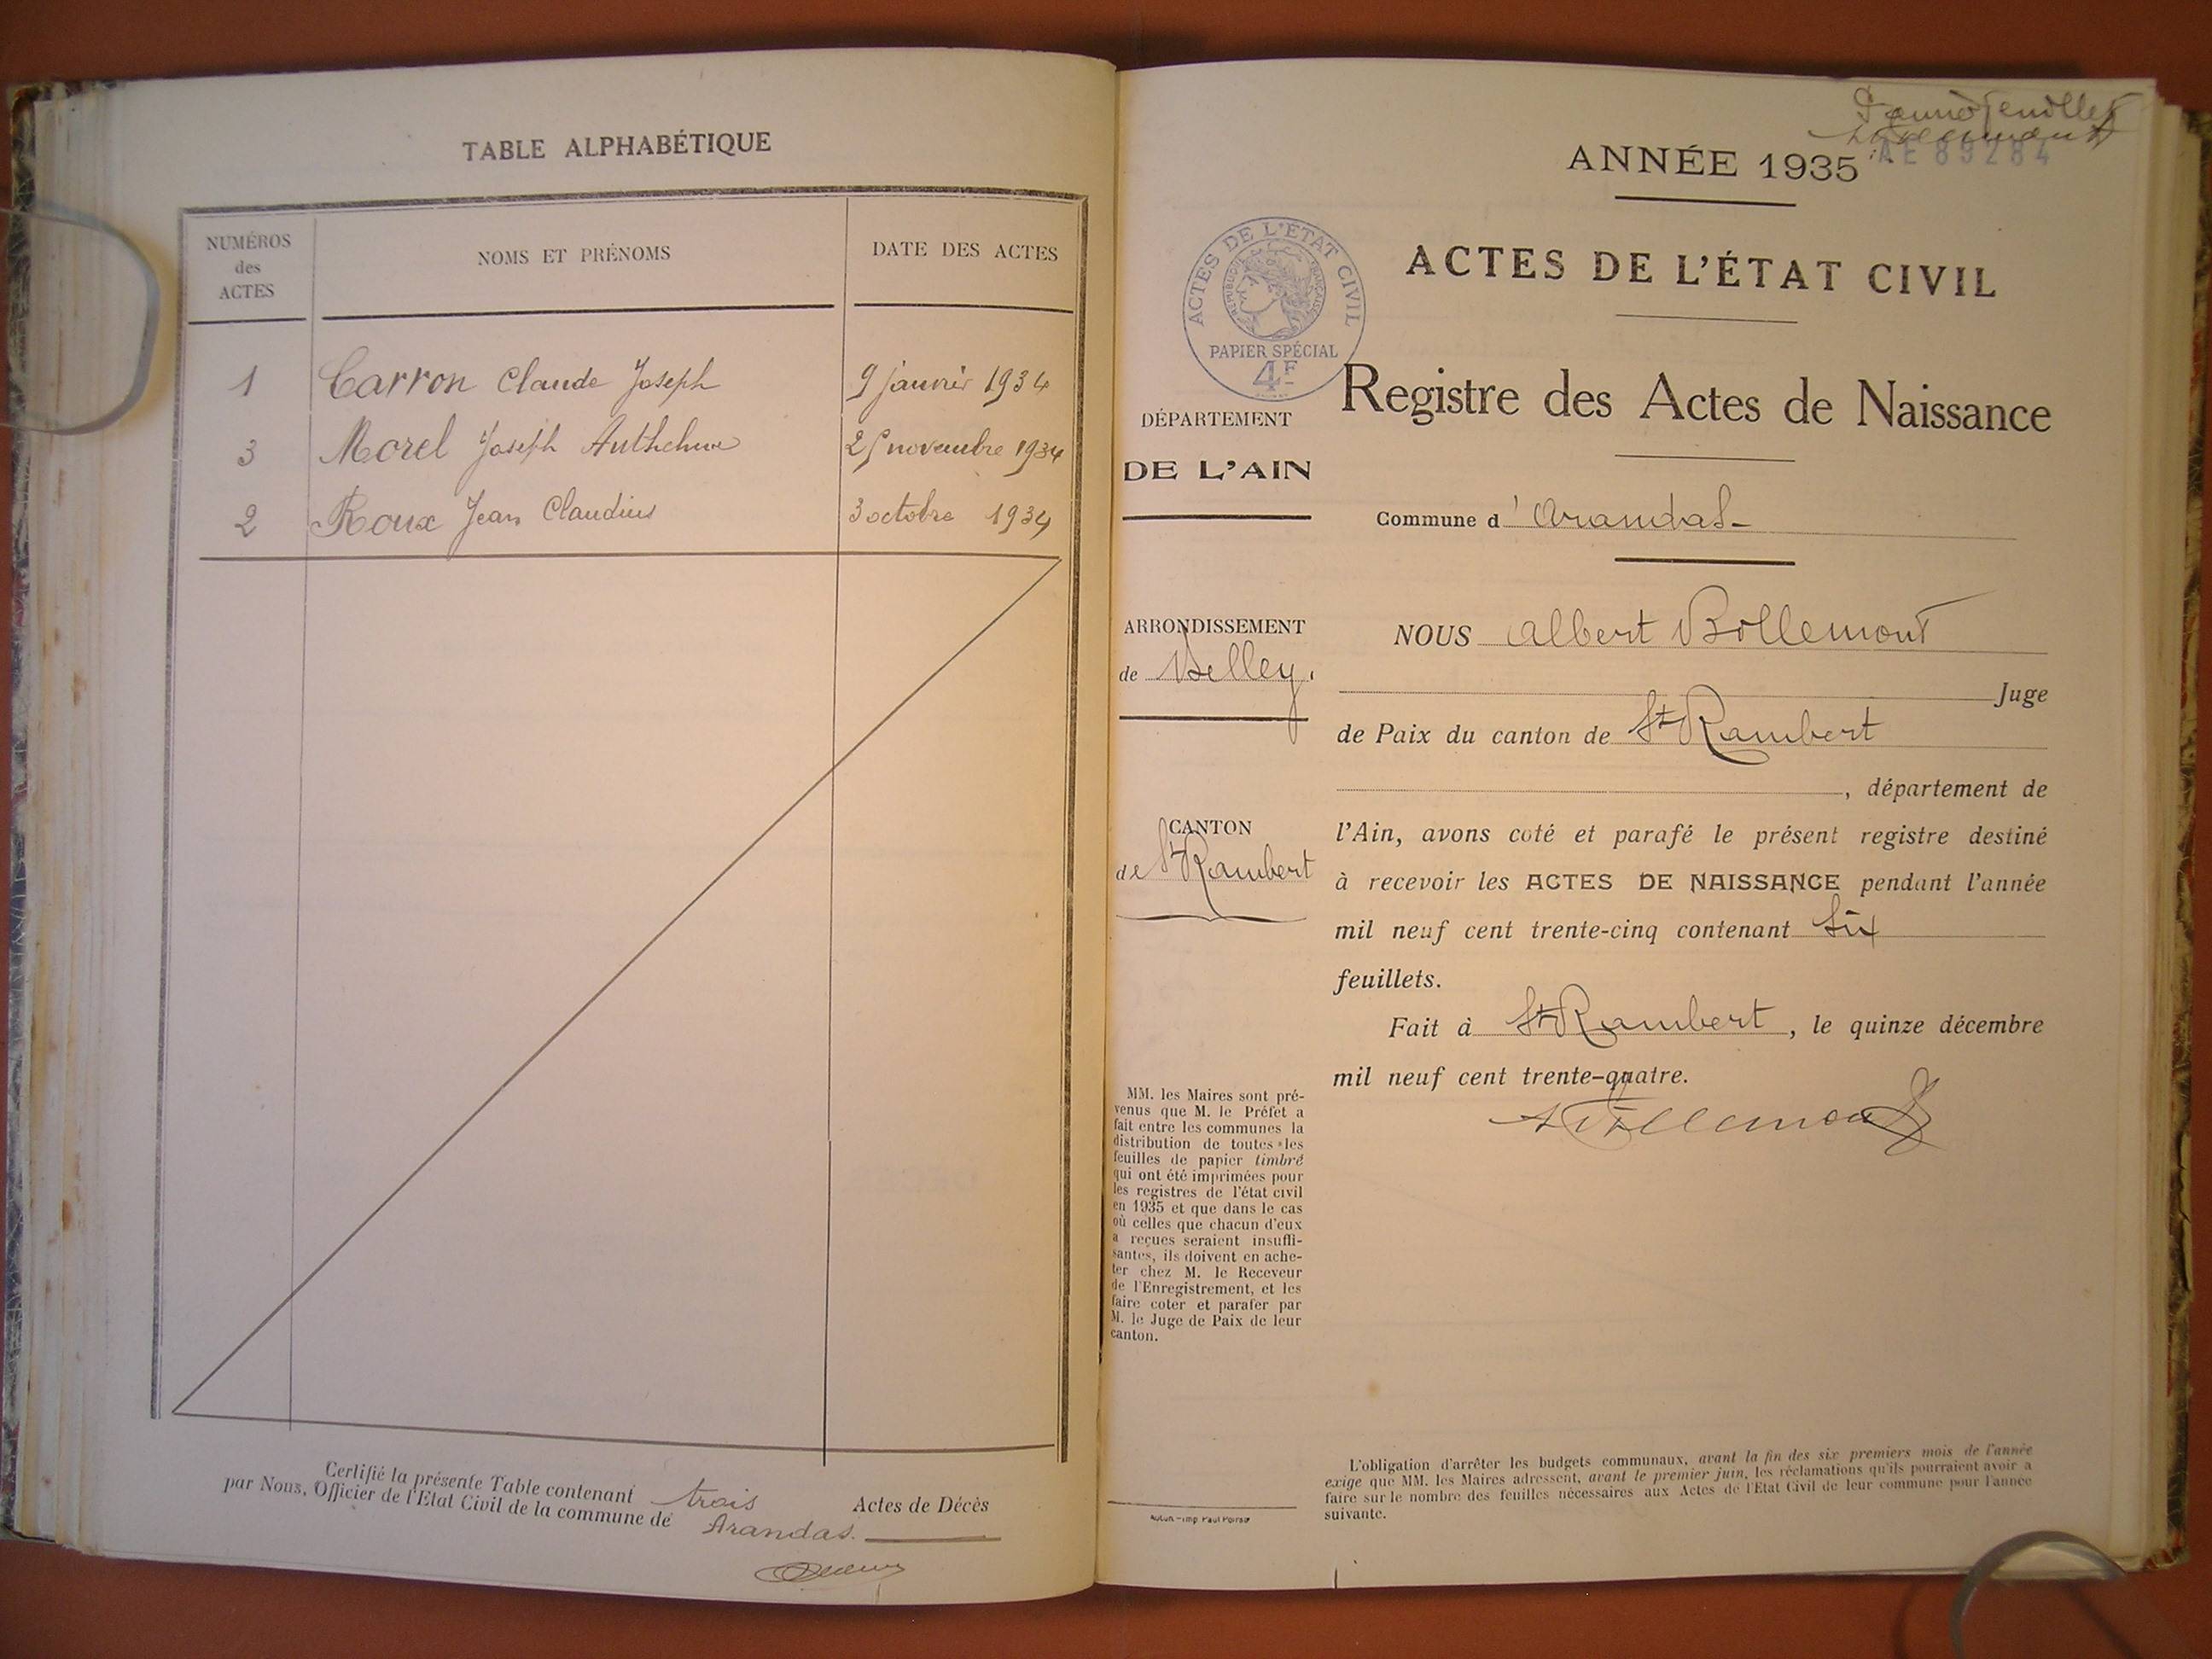 TABLE ALPHABÉTIQUE
NUMÉROS
des
ACTES
NOMS ET PRÉNOMS
DATE DES ACTES
1 Carron Claude Joseph 9 janvier 1934
3 Morel Joseph Anthelme 25 novembre 1934
2 Roux Jean Claudius 3 octobre 1934
Certifié la présente Table contenant trois Actes de Décès
par Nous, Officier de l'Etat Civil de la commune de Arandas.
feuillet
AE 89284
ANNÉE 1935
ACTES DE L'ÉTAT CIVIL
ACTES DE L'ÉTAT CIVIL
RÉPUBLIQUE FRANÇAISE
PAPIER SPÉCIAL
4F
Registre des Actes de Naissance
DÉPARTEMENT
DE L'AIN
Commune d'Arandas
ARRONDISSEMENT
de Belley.
CANTON
de St Rambert
NOUS Albert Bollemont
Juge
de Paix du canton de St Rambert
, département de
l'Ain, avons coté et parafé le présent registre destiné
à recevoir les ACTES DE NAISSANCE pendant l'année
mil neuf cent trente-cinq contenant six
feuillets.
Fait à St Rambert, le quinze décembre
mil neuf cent trente-quatre.
ABollemont
MM. les Maires sont pré-
venus que M. le Préfet a
fait entre les communes la
distribution de toutes les
feuilles de papier timbré
qui ont été imprimées pour
les registres de l'état civil
en 1935 et que dans le cas
où celles que chacun d'eux
a reçues seraient insuffi-
santes, ils doivent en ache-
ter chez M. le Receveur
de l'Enregistrement, et les
faire coter et parafer par
M. le Juge de Paix de leur
canton.
Autun - Imp Paul Poirson
L'obligation d'arrêter les budgets communaux, avant la fin des six premiers mois de l'année
exige que MM. les Maires adressent, avant le premier juin, les réclamations qu'ils pourraient avoir a
faire sur le nombre des feuilles nécessaires aux Actes de l'Etat Civil de leur commune pour l'année
suivante.